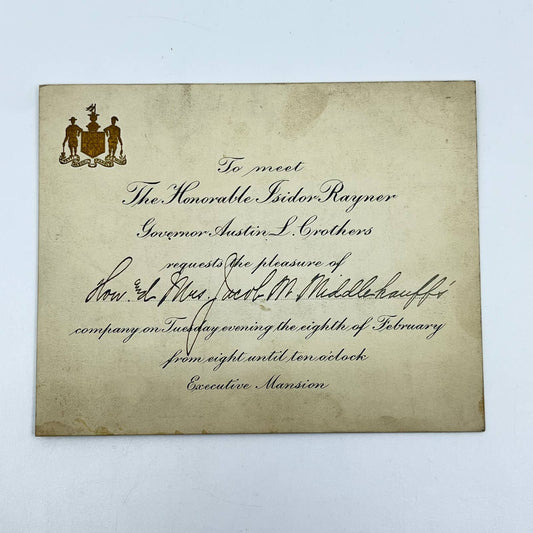 To meet
The Honorable Isidor Rayner
Governor Austin L. Crothers
requests the pleasure of
Hon. and Mrs. Jacob M Middlekauff's
company on Tuesday evening the eighth of February
from eight until ten o'clock
Executive Mansion